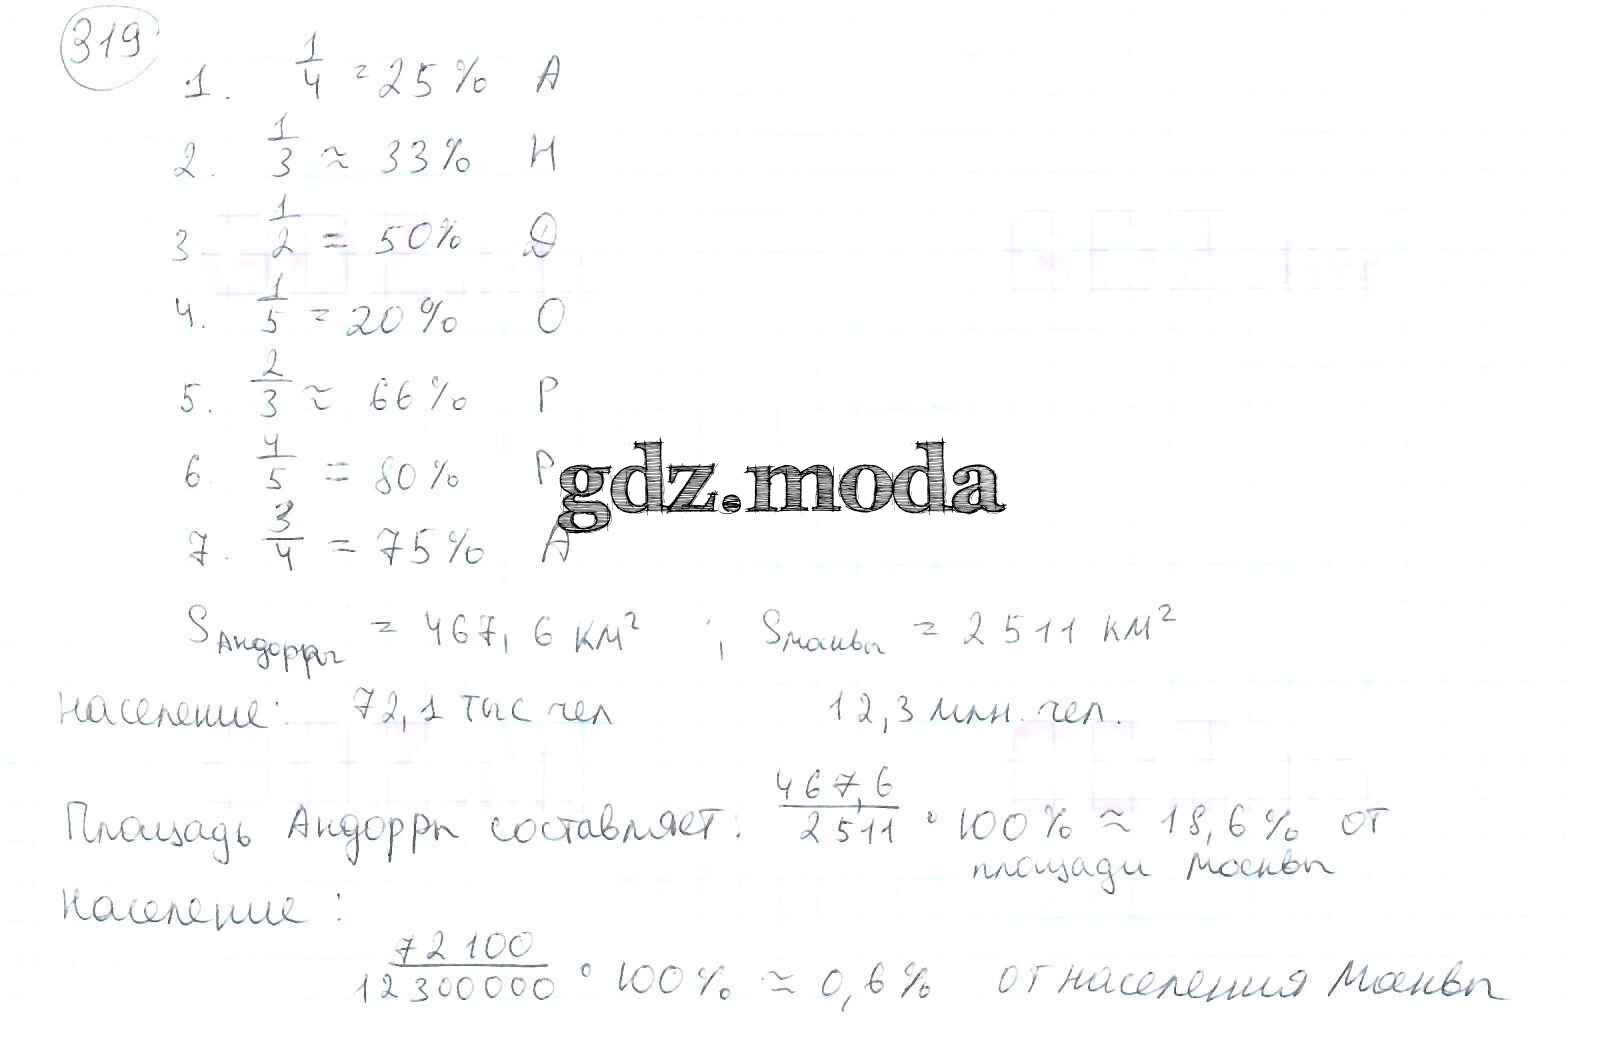 319
1. 1/4 = 25% А
2. 1/3 ≈ 33% Н
3 1/2 = 50% Д
4. 1/5 = 20% О
5. 2/3 ≈ 66% Р
6 4/5 = 80% Р
gdz.moda
7. 3/4 = 75% А
S Андорры = 467,6 км² ; S Москвы = 2511 км²
население: 72,1 тыс чел 12,3 млн. чел.
Площадь Андорры составляет: 467,6/2511 · 100% ≈ 18,6% от
площади Москвы
Население:
72100/12300000 · 100% ≈ 0,6% от населения Москвы